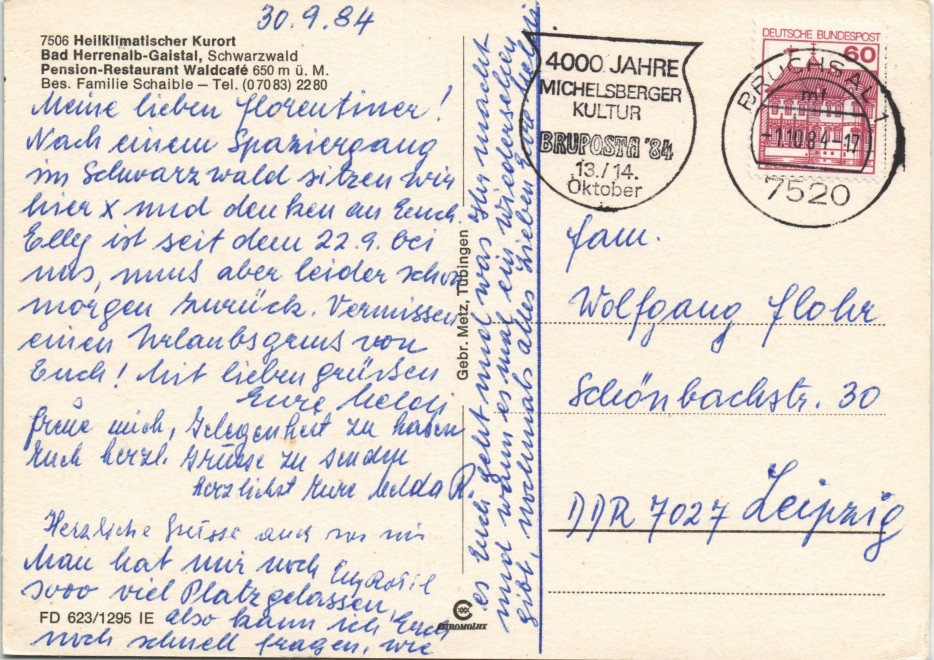 30.9.84
7506 Heilklimatischer Kurort
Bad Herrenalb-Gaistal, Schwarzwald
Pension-Restaurant Waldcafé 650 m ü. M.
Bes. Familie Schaible – Tel. (07083) 2280
Meine lieben Florentiner!
Nach einem Spaziergang
im Schwarzwald sitzen wir
hier x und denken an Euch.
Elly ist seit dem 22.9. bei
uns, muß aber leider schon
morgen zurück. Vermissen
einen Urlaubsgruß von
Euch! Mit lieben Grüßen
Eure
freue mich, Gelegenheit zu haben
Euch herzl. Grüsse zu senden
herzlichst Eure Melda R.
Herzliche Grüsse auch von mir
Man hat mir noch
sooo viel Platz gelassen,
also kann ich Euch
noch schnell fragen, wie
es Euch geht und was Ihr macht
und wann es mal ein Wiedersehen
gibt, nochmals alles Liebe Eure
FD 623/1295 IE
Chromolux
Gebr. Metz, Tübingen
4000 JAHRE
MICHELSBERGER
KULTUR
BRUPOSTA '84
13./14.
Oktober
DEUTSCHE BUNDESPOST
60
BRUCHSAL 1
mf
-1.10.84-17
7520
Fam.
Wolfgang Flohr
Schönbachstr. 30
DDR 7027 Leipzig